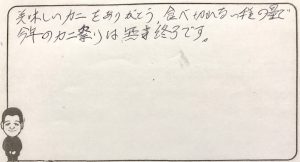 美味しいカニをありがとう 食べ切れる程の量で
今年のカニ祭りは無事終了です。